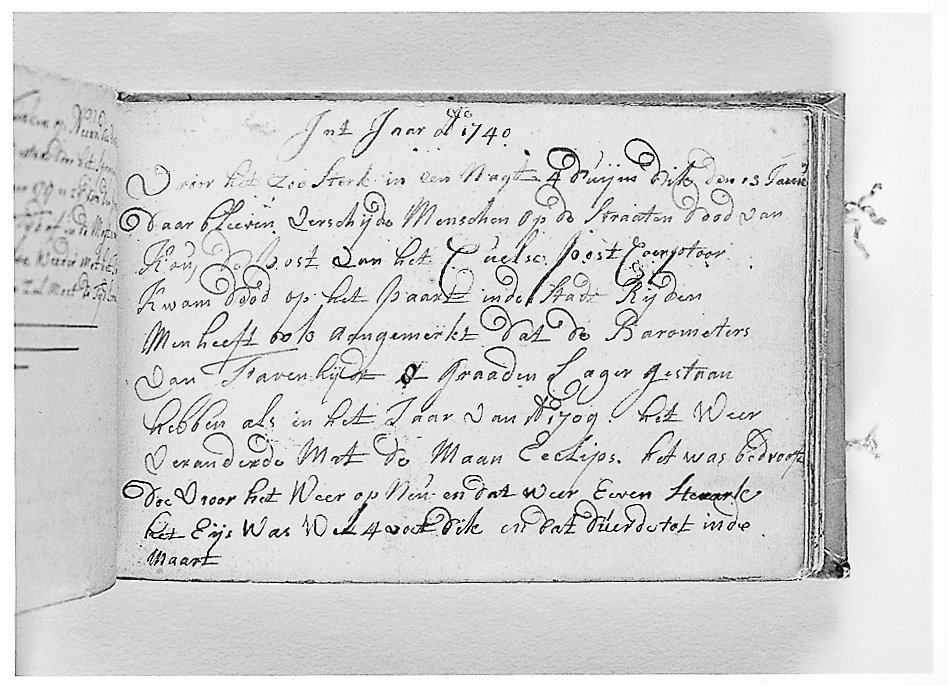 Int Jaar Ao 1740
Vroor het Zoo Sterk in een Nagt 4 duijm dik den 13 Janu
daar bleeven Verschijde Menschen op de Straaten dood van
Kou de post Van het post Comptoor
Kwam dood op het paart inde Stadt Rijden
Men heeft ook Aangemerkt dat de Barometers
Van Graaden Lager gestaan
hebben als in het Jaar Van Ao 1709. het Weer
Veranderde Met de Maan Eeclips. het was bedroeft
doe Vroor het Weer op Neu en dat weer Eeven Sterk
het Eijs Was Wel 4 voet dik en dat duerde tot in de
Maart